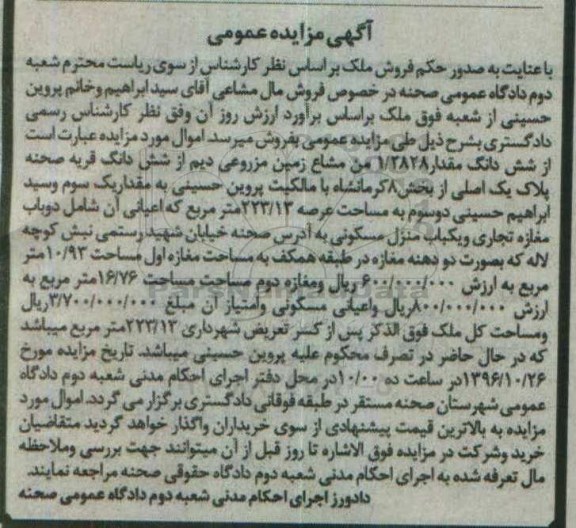 آگهی مزایده عمومی
با عنایت به صدور حکم فروش ملک بر اساس نظر کارشناس از سوی ریاست محترم شعبه
دوم دادگاه عمومی صحنه در خصوص فروش مال مشاعی آقای سید ابراهیم وخانم پروین
حسینی از شعبه فوق ملک براساس برآورد ارزش روز آن وفق نظر کارشناس رسمی
دادگستری بشرح ذیل طی مزایده عمومی بفروش میرسد. اموال مورد مزایده عبارت است
از شش دانگ مقدار۱/۲۸۲۸ من مشاع زمین مزروعی دیم از شش دانگ قریه صحنه
پلاک یک اصلی از بخش۸کرمانشاه با مالکیت پروین حسینی به مقداریک سوم وسید
ابراهیم حسینی دوسوم به مساحت عرصه ۲۲۳/۱۳متر مربع که اعیانی آن شامل دوباب
مغازه تجاری ویکباب منزل مسکونی به آدرس صحنه خیابان شهید رستمی نبش کوچه
لاله که بصورت دو دهنه مغازه در طبقه همکف به مساحت مغازه اول مساحت ۱۰/۹۳متر
مربع به ارزش ۶۰۰/۰۰۰/۰۰۰ ریال ومغازه دوم مساحت مساحت ۱۶/۷۶متر مربع به
ارزش ۸۰۰/۰۰۰/۰۰۰ریال واعیانی مسکونی وامتیاز آن مبلغ ۳/۷۰۰/۰۰۰/۰۰۰ریال
ومساحت کل ملک فوق الذکر پس از کسر تعریض شهرداری ۲۲۳/۱۳متر مربع میباشد
که در حال حاضر در تصرف محکوم علیه پروین حسینی میباشد. تاریخ مزایده مورخ
۱۳۹۶/۱۰/۲۶در ساعت ده ۱۰/۰۰در محل دفتر اجرای احکام مدنی شعبه دوم دادگاه
عمومی شهرستان صحنه مستقر در طبقه فوقانی دادگستری برگزار می گردد. اموال مورد
مزایده به بالاترین قیمت پیشنهادی از سوی خریداران واگذار خواهد گردید متقاضیان
خرید وشرکت در مزایده فوق الاشاره تا روز قبل از آن میتوانند جهت بررسی وملاحظه
مال تعرفه شده به اجرای احکام مدنی شعبه دوم دادگاه حقوقی صحنه مراجعه نمایند.
دادورز اجرای احکام مدنی شعبه دوم دادگاه عمومی صحنه